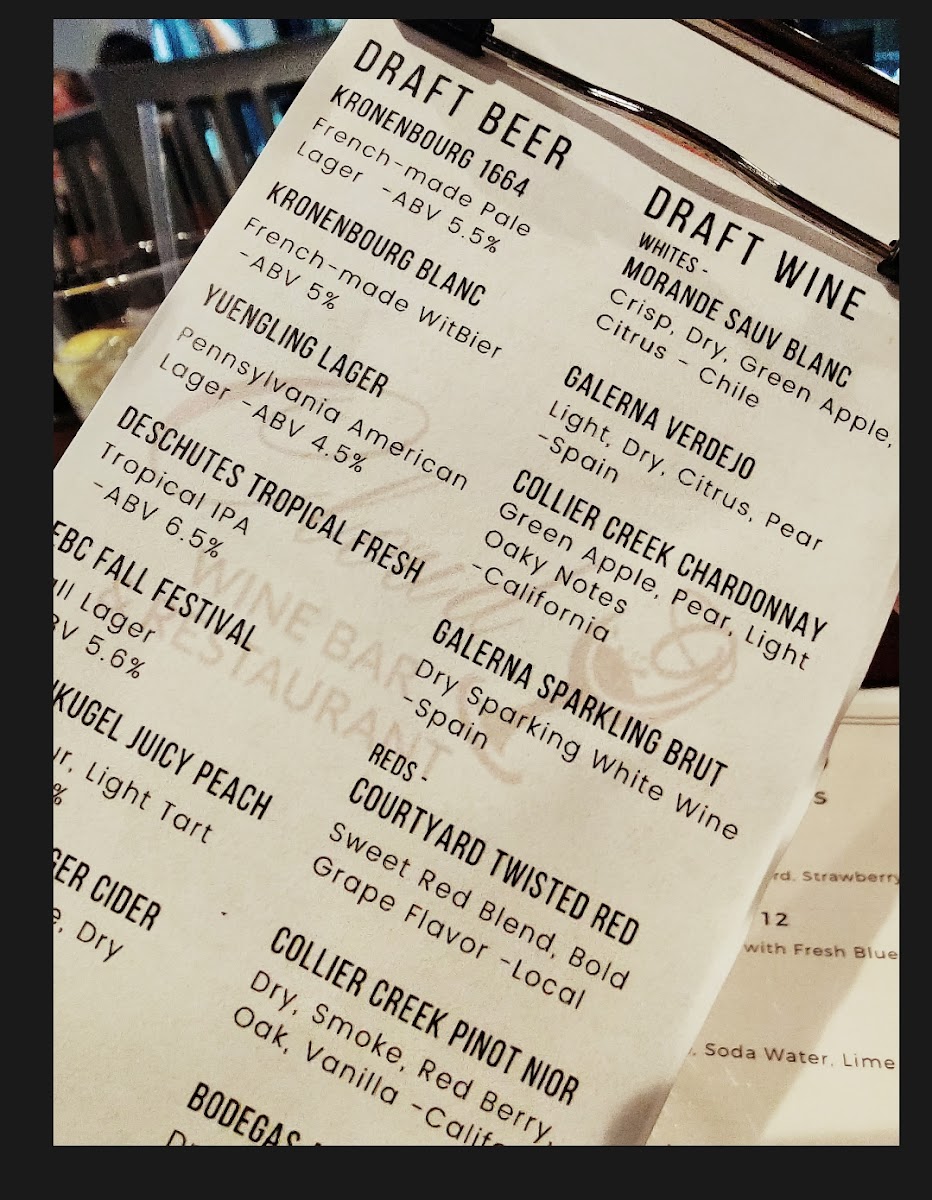 DRAFT BEER
KRONENBOURG 1664
French-made Pale
Lager -ABV 5.5%
KRONENBOURG BLANC
French-made WitBier
-ABV 5%
YUENGLING LAGER
Pennsylvania American
Lager -ABV 4.5%
DESCHUTES TROPICAL FRESH
Tropical IPA
-ABV 6.5%
EBC FALL FESTIVAL
Lager
5.6%
JUICY PEACH
Light Tart
%
CIDER
Dry
DRAFT WINE
WHITES -
MORANDE SAUV BLANC
Crisp, Dry, Green Apple,
Citrus - Chile
GALERNA VERDEJO
Light, Dry, Citrus, Pear
-Spain
COLLIER CREEK CHARDONNAY
Green Apple, Pear, Light
Oaky Notes
-California
GALERNA SPARKLING BRUT
Dry Sparking White Wine
-Spain
REDS -
COURTYARD TWISTED RED
Sweet Red Blend, Bold
Grape Flavor -Local
COLLIER CREEK PINOT NIOR
Dry, Smoke, Red Berry,
Oak, Vanilla -Califo
BODEGAS
WINE BAR
& RESTAURANT
Strawberry
12
with Fresh Blue
Soda Water, Lime